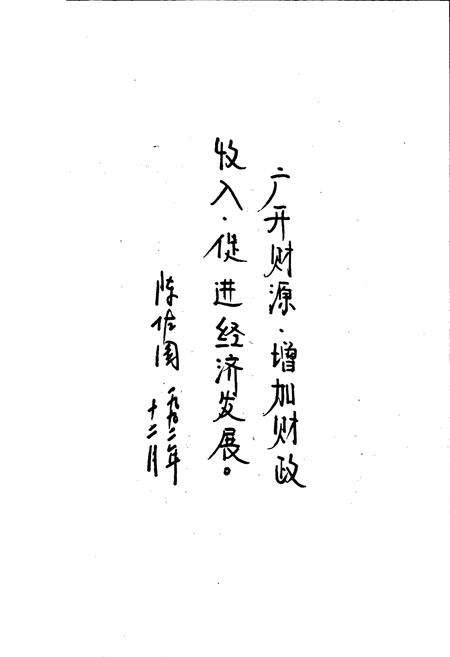 广开财源·增加财政
收入·促进经济发展。
陈佐国
一九九二年
十二月